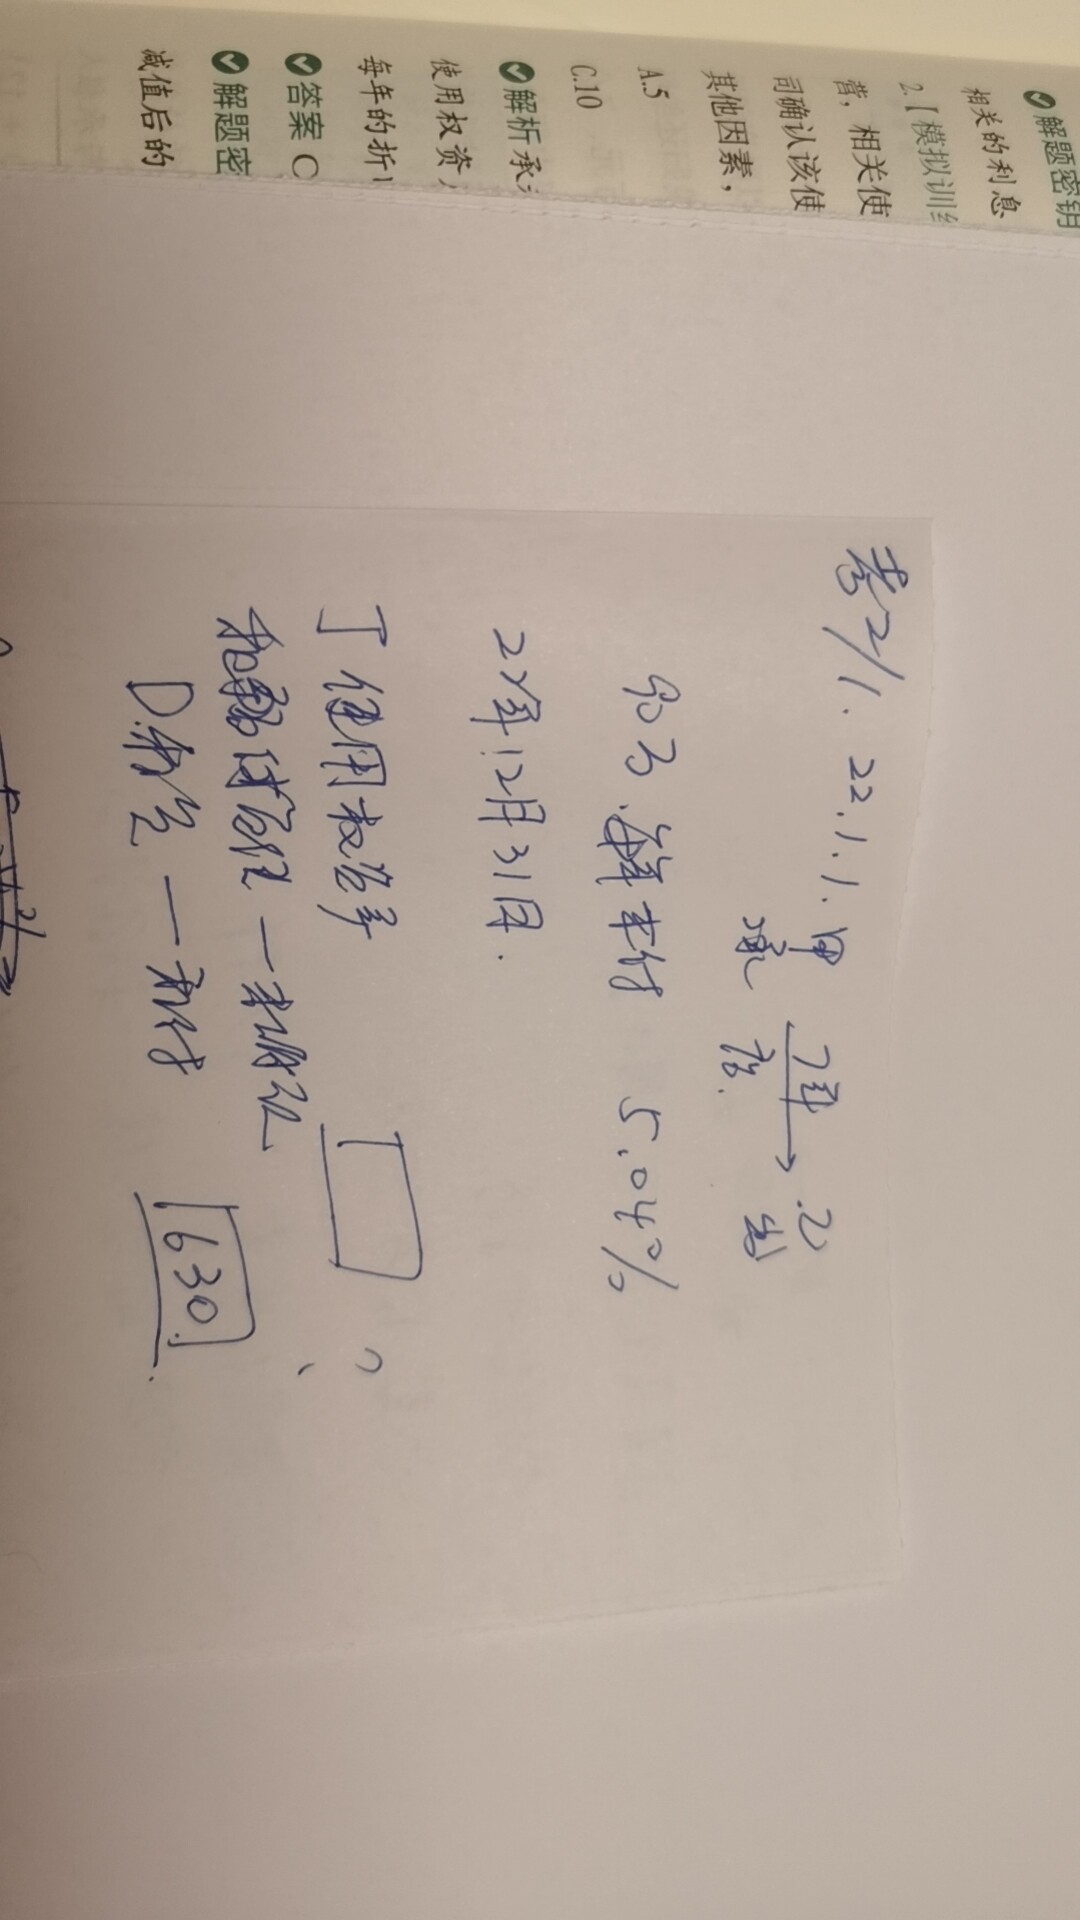 解题密钥
相关的利息
2.【模拟训练
营，相关使
司确认该使
其他因素，
A.5
C.10
解析 承
使用权资
每年的折
答案 C
解题密
减值后的
考2/1. 22.1.1. 甲 7年 乙
承 出
90万. 每年末付 5.04%
22年12月31日.
丁 使用权资产
租赁
D.租金 — 租付 630.